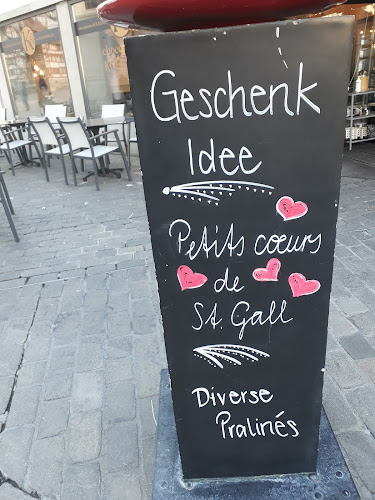 Geschenk
Idee
Petits cœurs
de
St. Gall
Diverse
Pralinés